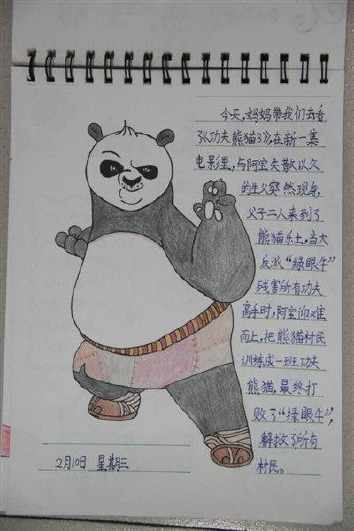 今天,妈妈带我们去看
《功夫熊猫3》,在新一集
电影里,与阿宝失散以久
的生父突然现身,
父子二人来到了
熊猫乐土,当大
反派“绿眼牛”
残害所有功夫
高手时,阿宝迎难
而上,把熊猫村民
训练成一班功夫
熊猫,最终打
败了“绿眼牛”,
解救了所有
村民。
2月10日 星期三